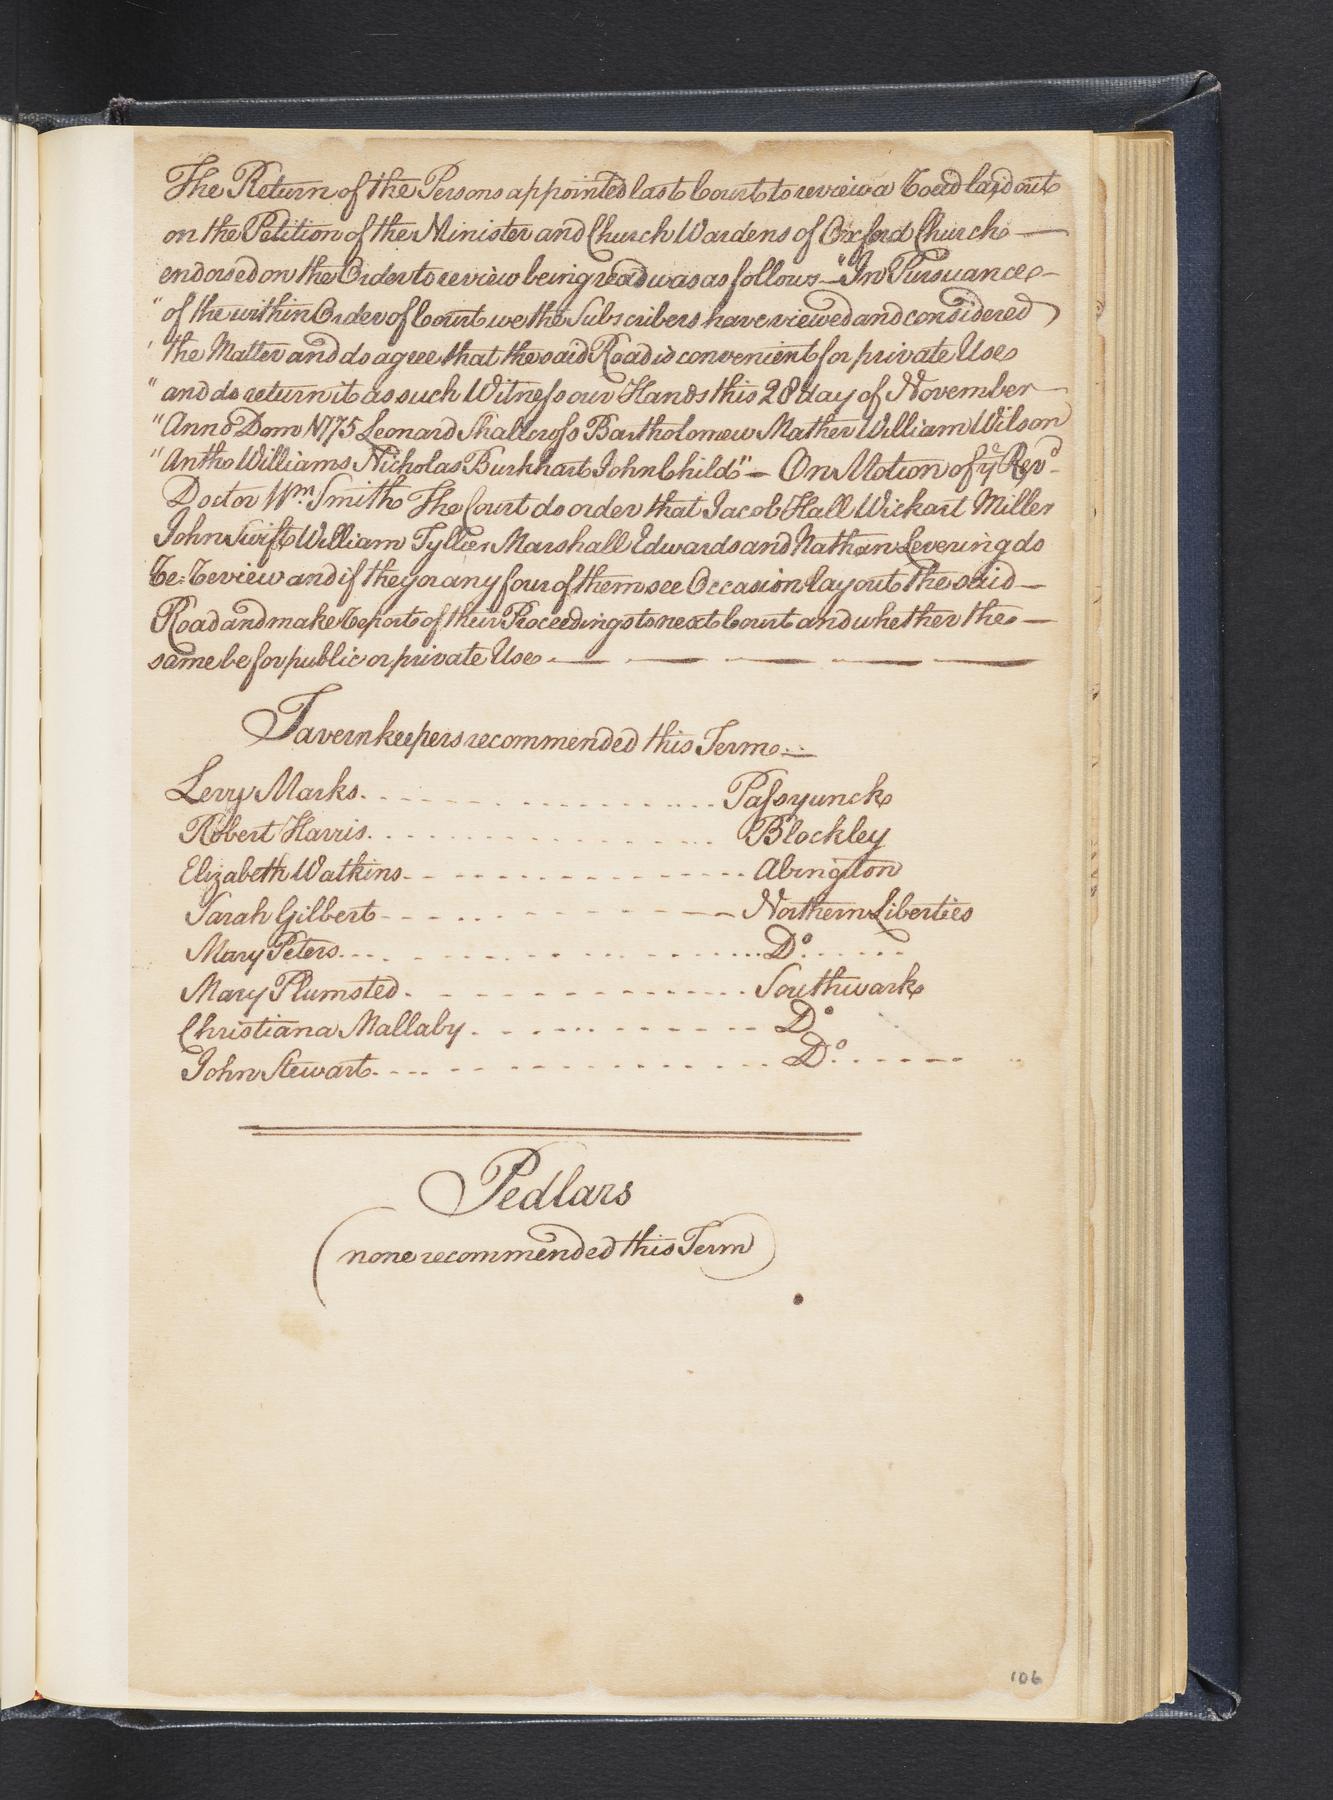 The Return of the Persons appointed last Court to review a Road laid out
on the Petition of the Minister and Church Wardens of Oxford Church —
endorsed on the Order to review being read was as follows — "In Pursuance -
" of the within Order of Court we the Subscribers have viewed and considered
' the Matter and do agree that the said Road is convenient for private Use
" and do return it as such Witness our Hands this 28 day of November —
" Anno Dom 1775 Leonard Shallcross Bartholomew Mather William Wilson
" Antho Williams Nicholas Burkhart John Child" — On Motion of ye Revd.
Doctor Wm Smith The Court do order that Jacob Hall Wickart Miller
John Swift William Tyllier Marshall Edwards and Nathan Levering do
Re: Review and if they or any four of them see Occasion lay out the said —
Road and make Report of their Proceedings to next Court and whether the —
same be for public or private Use. — — — — —
Tavernkeepers recommended this Term
Levy Marks. Passyunck
Robert Harris. Blockley
Elizabeth Watkins Abington
Sarah Gilbert Northern Liberties
Mary Peters Do.
Mary Plumsted Southwark
Christiana Mallaby Do
John Stewart Do.
Pedlars
(none recommended this Term)
106